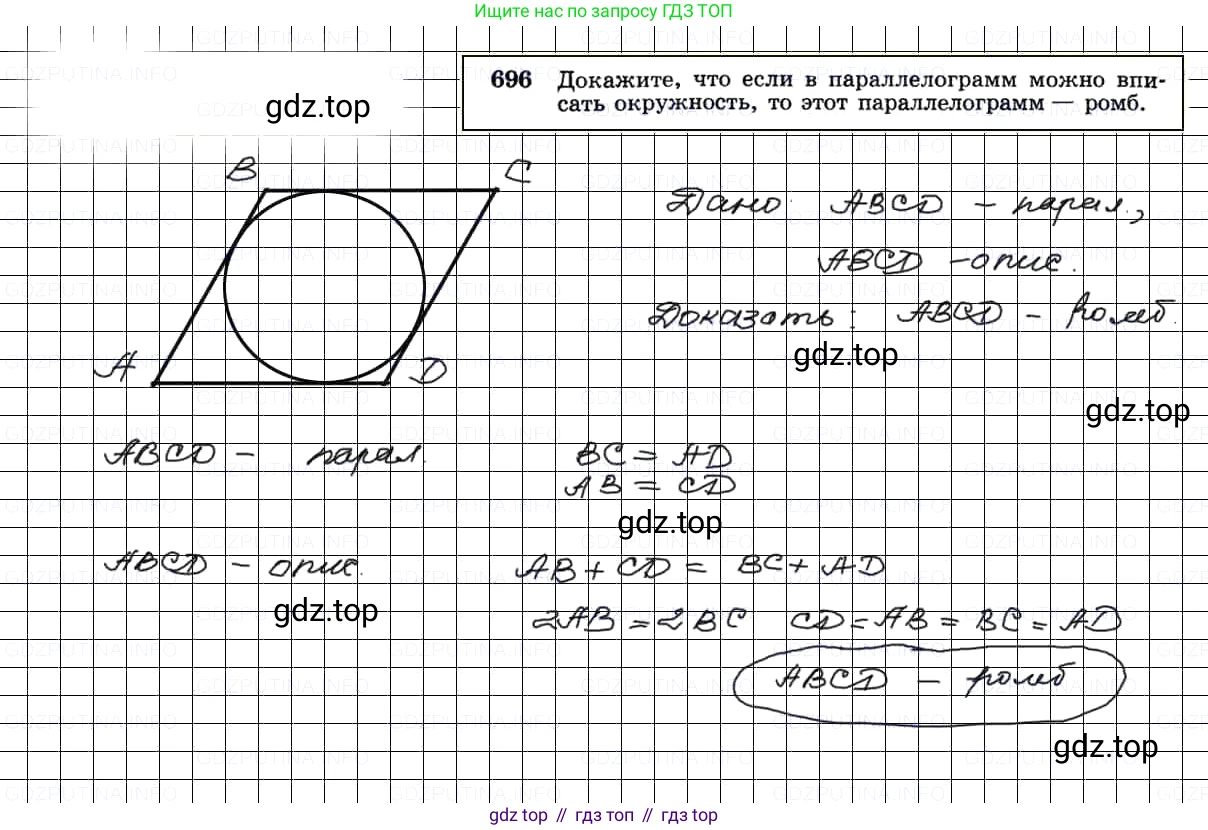 Ищите нас по запросу ГДЗ ТОП
696 Докажите, что если в параллелограмм можно впи-
сать окружность, то этот параллелограмм — ромб.
gdz.top
B C
Дано: ABCD - парал.,
ABCD - опис.
Доказать: ABCD - ромб.
gdz.top
A D
gdz.top
ABCD - парал. BC = AD
AB = CD
gdz.top
ABCD - опис. AB + CD = BC + AD
gdz.top
2AB = 2BC CD = AB = BC = AD
ABCD - ромб
gdz.top
gdz top // гдз топ // гдз top